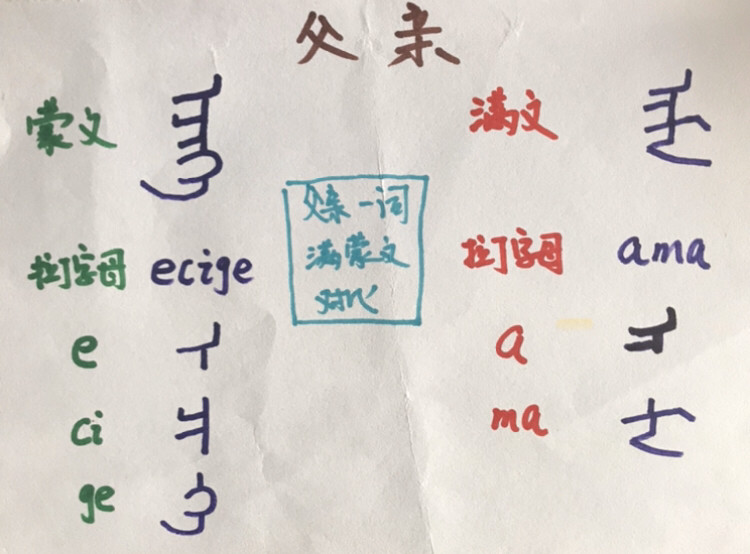 父亲
蒙文 ᠡᠴᠢᠭᠡ
拉丁字母 ecige
e ᠡ
ci ᠴᠢ
ge ᠭᠡ
父亲一词
满蒙文
对比
满文 ᠠᠮᠠ
拉丁字母 ama
a ᠠ
ma ᠮᠠ